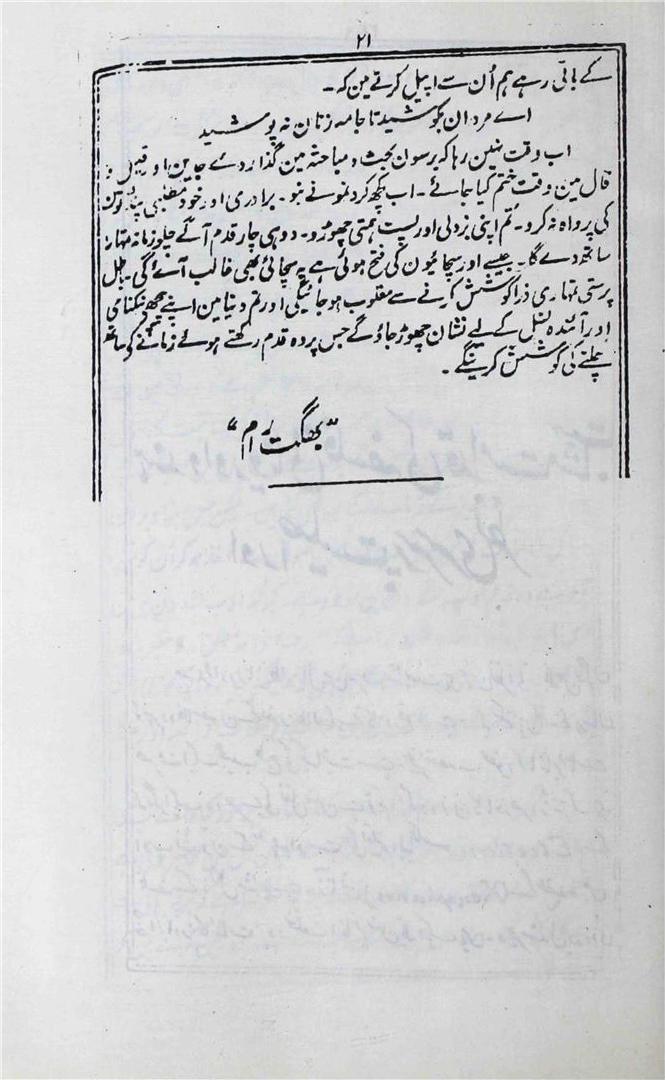 ۲۱
کے باقی رہے ہم اُن سے اپیل کرتے مین کہ ۔
اے مردان بکوشید تا جامہ زنان نہ پوشید
اب وقت نہین رہا کہ برسون بحث و مباحثہ مین گذار دے جاین اور قیل و
قال مین وقت ختم کیا جائے ۔ اب کچھ کرد نمونے بنو ۔ برادری اور خود مطلبی
کی پرواہ نہ کرو ۔ تُم اپنی بزدلی اور پست ہمتی چھوڑو ۔ دو ہی چار قدم آگے چلو زمانہ تمہارا
ساتھ دے گا ۔ جیسے اور سچائیون کی فتح ہوئی ہے یہ سچائی بھی غالب آئے گی ۔ باطل
پرستی تمہاری ذرا کوشش کرنے سے مغلوب ہوجائیگی اور تم دنیا مین اپنے پیچھے نیکنامی
اور آئندہ نسل کے لیے نشان چھوڑ جاؤ گے جس پر وہ قدم رکھتے ہوئے زمانے کے ساتھ
چلنے کی کوشش کرینگے ۔
”بھگت رام“